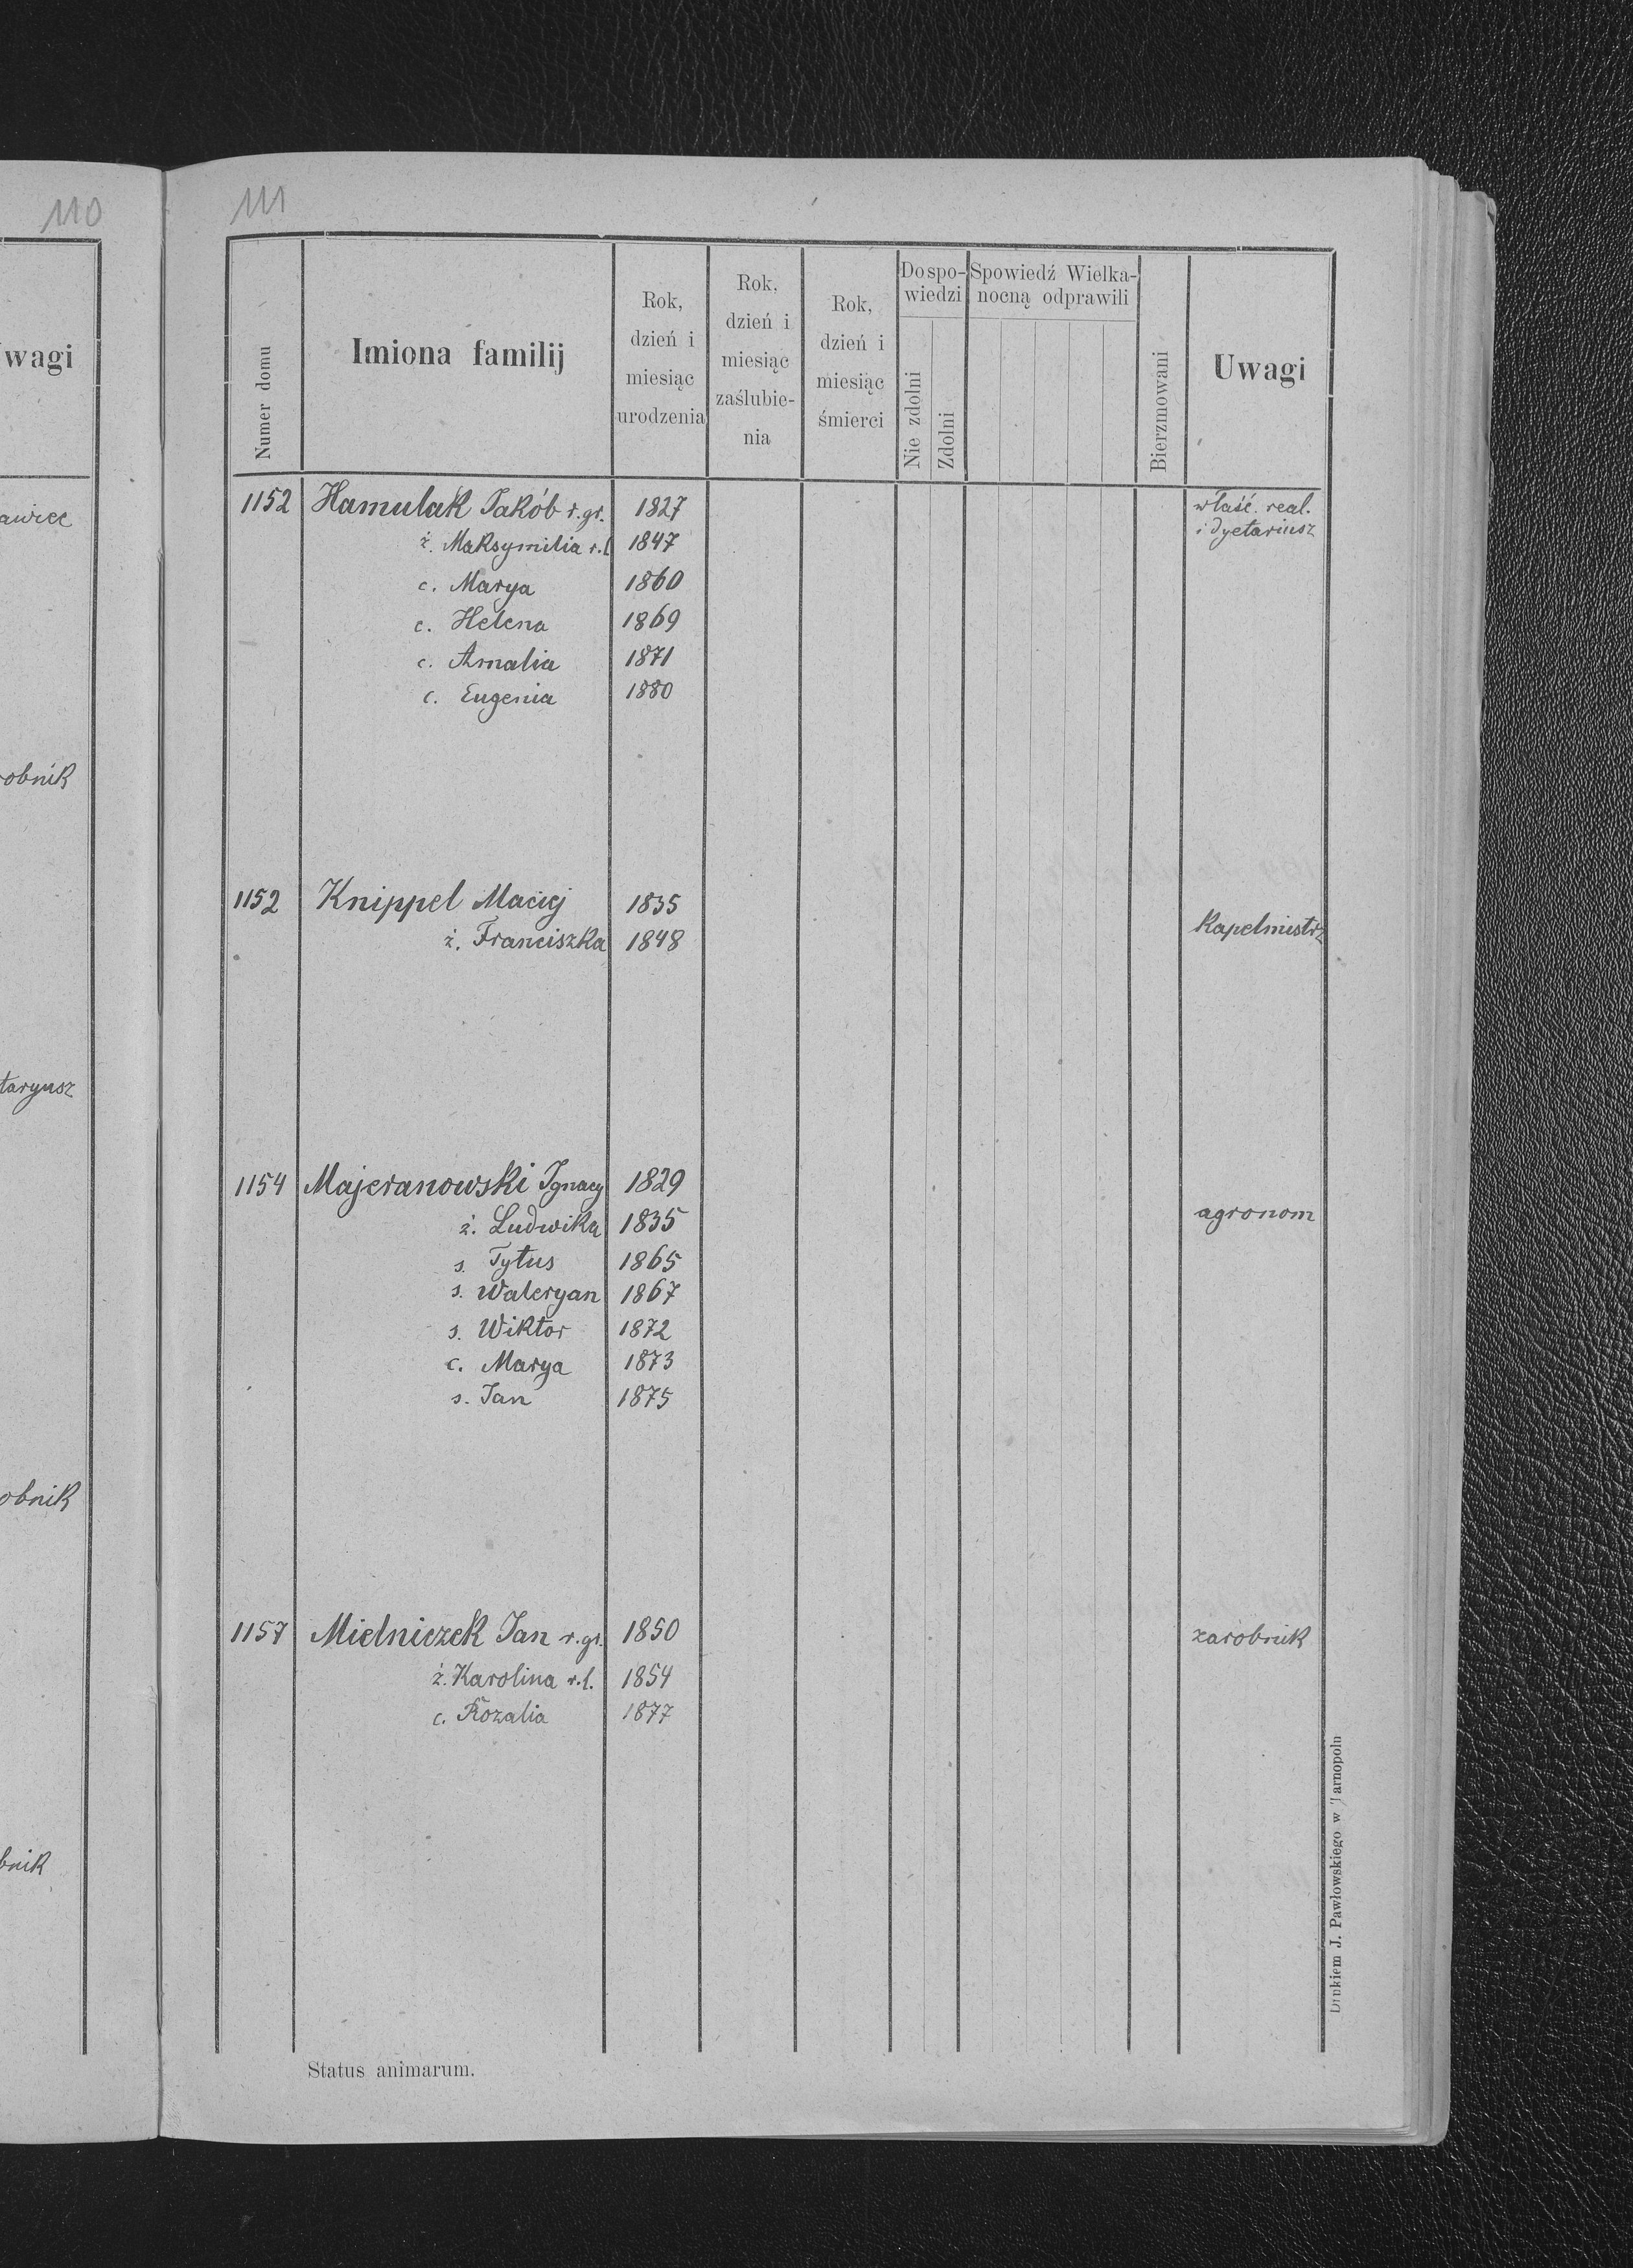 110
wagi
awiec
robnik
taryusz
obnik
bnik
111
Numer domu
Imiona familij
Rok,
dzień i
miesiąc
urodzenia
Rok,
dzień i
miesiąc
zaślubie-
nia
Rok,
dzień i
miesiąc
śmierci
Do spo-
wiedzi
Nie zdolni
Zdolni
Spowiedź Wielka-
nocną odprawili
Bierzmowani
Uwagi
1152 Hamulak Jakób r. gr. 1827 właść. real.
ż. Maksymilia r. l 1847 i dyetariusz
c. Marya 1860
c. Helena 1869
c. Amalia 1871
c. Eugenia 1880
1152 Knippel Maciej 1835 Kapelmistrz
ż. Franciszka 1848
1154 Majeranowski Ignacy 1829
ż. Ludwika 1835 agronom
s. Tytus 1865
s. Waleryan 1867
s. Wiktor 1872
c. Marya 1873
s. Jan 1875
1157 Mielniczek Jan r. gr. 1850 zarobnik
ż. Karolina r. l. 1854
c. Rozalia 1877
Status animarum.
Drukiem J. Pawłowskiego w Tarnopolu